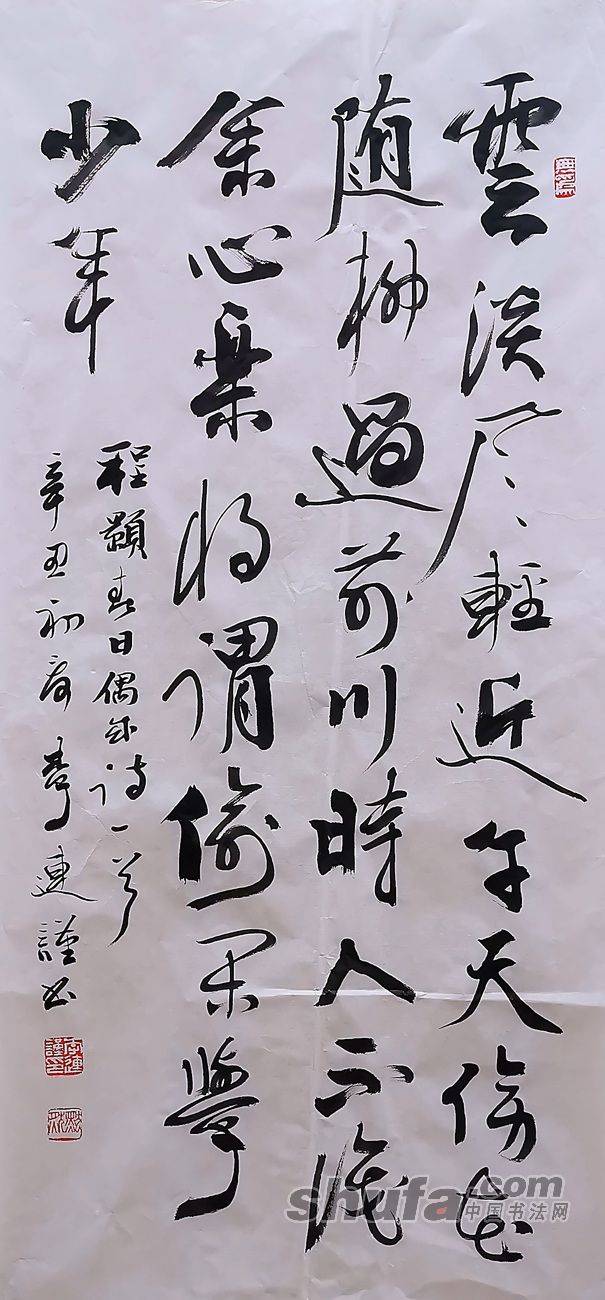 雲淡風輕近午天傍花
随柳過前川時人不識
余心樂將謂偷閑學
少年
程顥春日偶成诗一首
辛丑初夏 連謹书
shufa.com
中国书法网